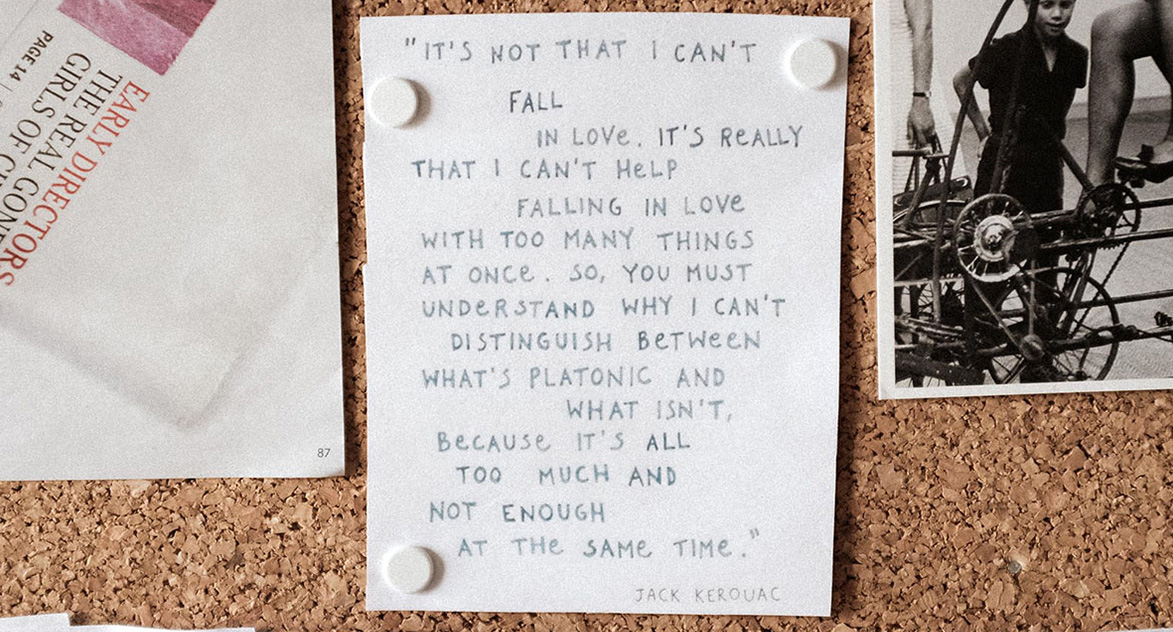 PAGE 14
EARLY DIRECTORS
THE REAL
GIRLS OF
87
"IT'S NOT THAT I CAN'T
FALL
IN LOVE. IT'S REALLY
THAT I CAN'T HELP
FALLING IN LOVE
WITH TOO MANY THINGS
AT ONCE. SO, YOU MUST
UNDERSTAND WHY I CAN'T
DISTINGUISH BETWEEN
WHAT'S PLATONIC AND
WHAT ISN'T,
BECAUSE IT'S ALL
TOO MUCH AND
NOT ENOUGH
AT THE SAME TIME."
JACK KEROUAC